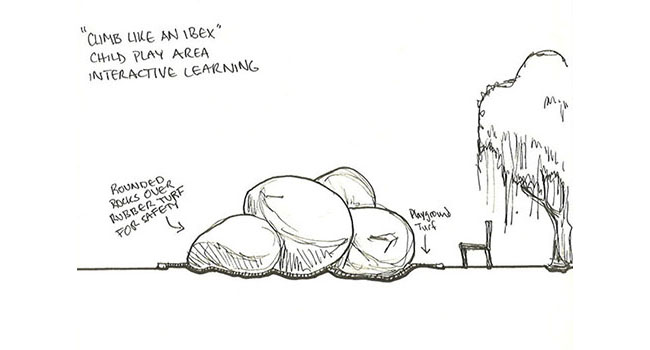 "CLIMB LIKE AN IBEX"
CHILD PLAY AREA
INTERACTIVE LEARNING
ROUNDED
ROCKS OVER
RUBBER TURF
FOR SAFETY
Playground
Turf